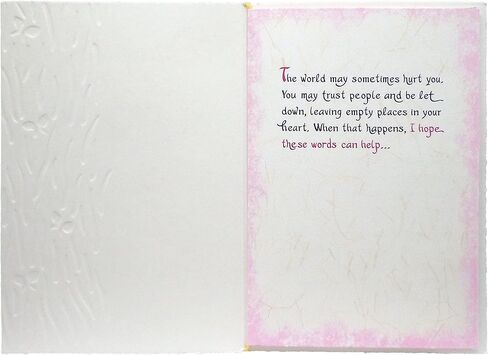 The world may sometimes hurt you.
You may trust people and be let
down, leaving empty places in your
heart. When that happens, I hope
these words can help...